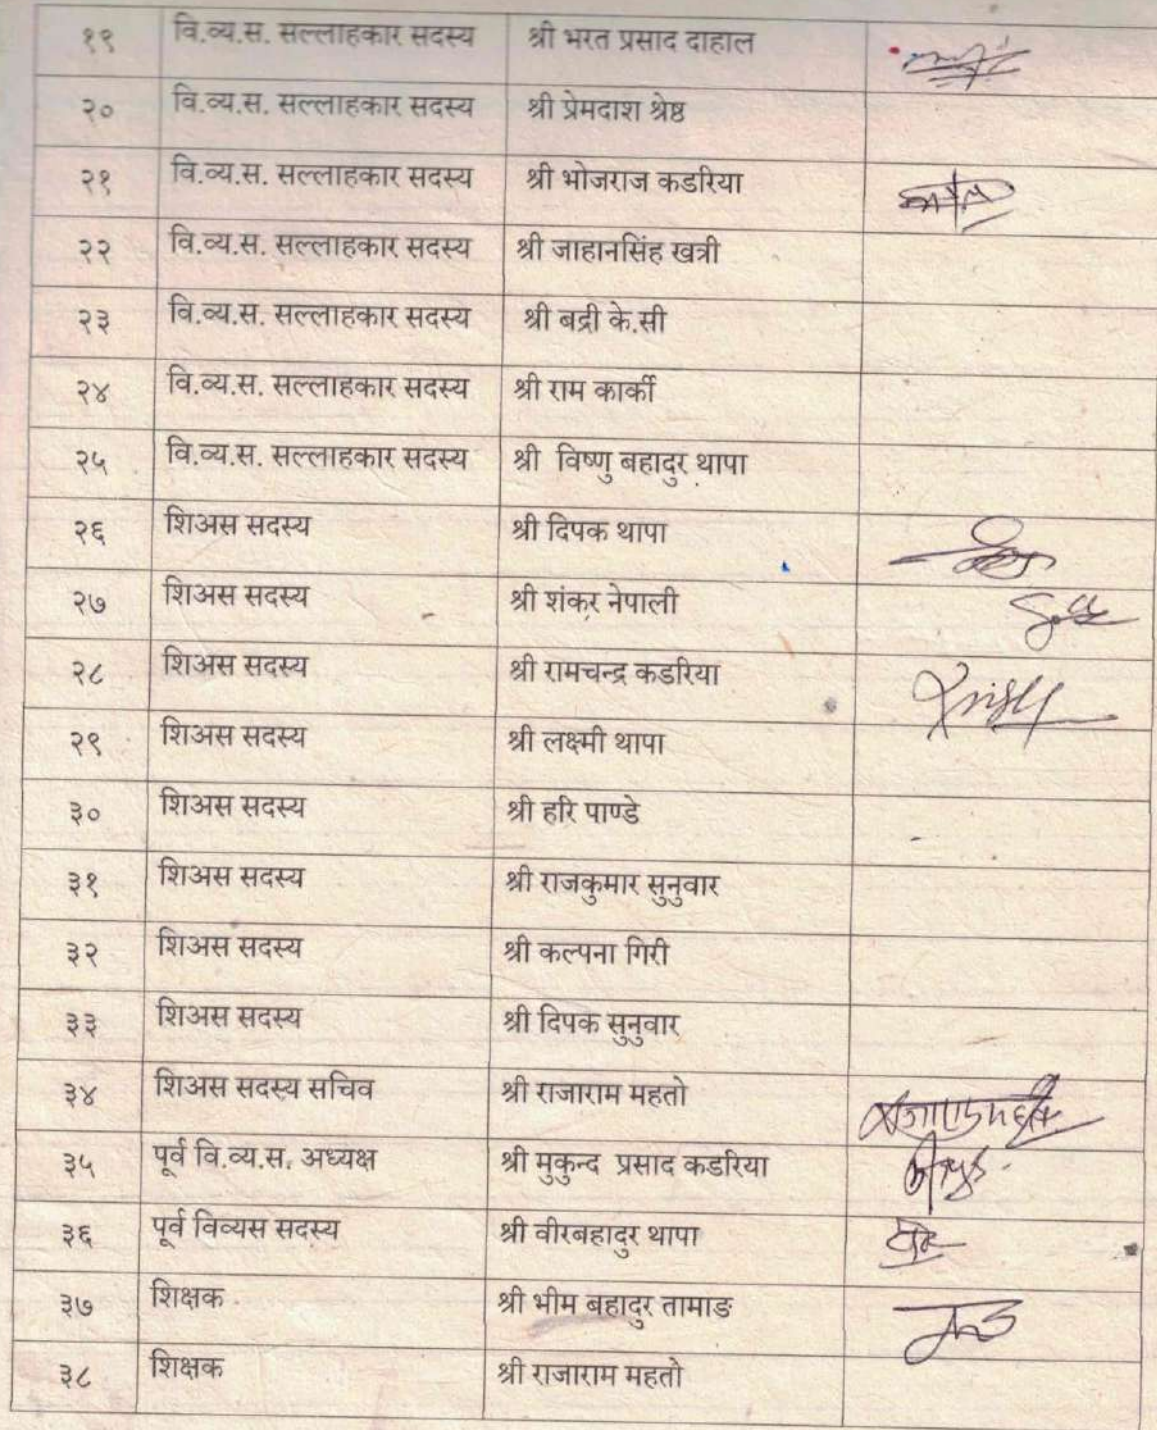 १९ वि.व्य.स. सल्लाहकार सदस्य श्री भरत प्रसाद दाहाल
२० वि.व्य.स. सल्लाहकार सदस्य श्री प्रेमदाश श्रेष्ठ
२१ वि.व्य.स. सल्लाहकार सदस्य श्री भोजराज कडरिया
२२ वि.व्य.स. सल्लाहकार सदस्य श्री जाहानसिंह खत्री
२३ वि.व्य.स. सल्लाहकार सदस्य श्री बद्री के.सी
२४ वि.व्य.स. सल्लाहकार सदस्य श्री राम कार्की
२५ वि.व्य.स. सल्लाहकार सदस्य श्री विष्णु बहादुर थापा
२६ शिअस सदस्य श्री दिपक थापा
२७ शिअस सदस्य श्री शंकर नेपाली
२८ शिअस सदस्य श्री रामचन्द्र कडरिया
२९ शिअस सदस्य श्री लक्ष्मी थापा
३० शिअस सदस्य श्री हरि पाण्डे
३१ शिअस सदस्य श्री राजकुमार सुनुवार
३२ शिअस सदस्य श्री कल्पना गिरी
३३ शिअस सदस्य श्री दिपक सुनुवार
३४ शिअस सदस्य सचिव श्री राजाराम महतो
३५ पूर्व वि.व्य.स. अध्यक्ष श्री मुकुन्द प्रसाद कडरिया
३६ पूर्व विव्यस सदस्य श्री वीरबहादुर थापा
३७ शिक्षक श्री भीम बहादुर तामाङ
३८ शिक्षक श्री राजाराम महतो